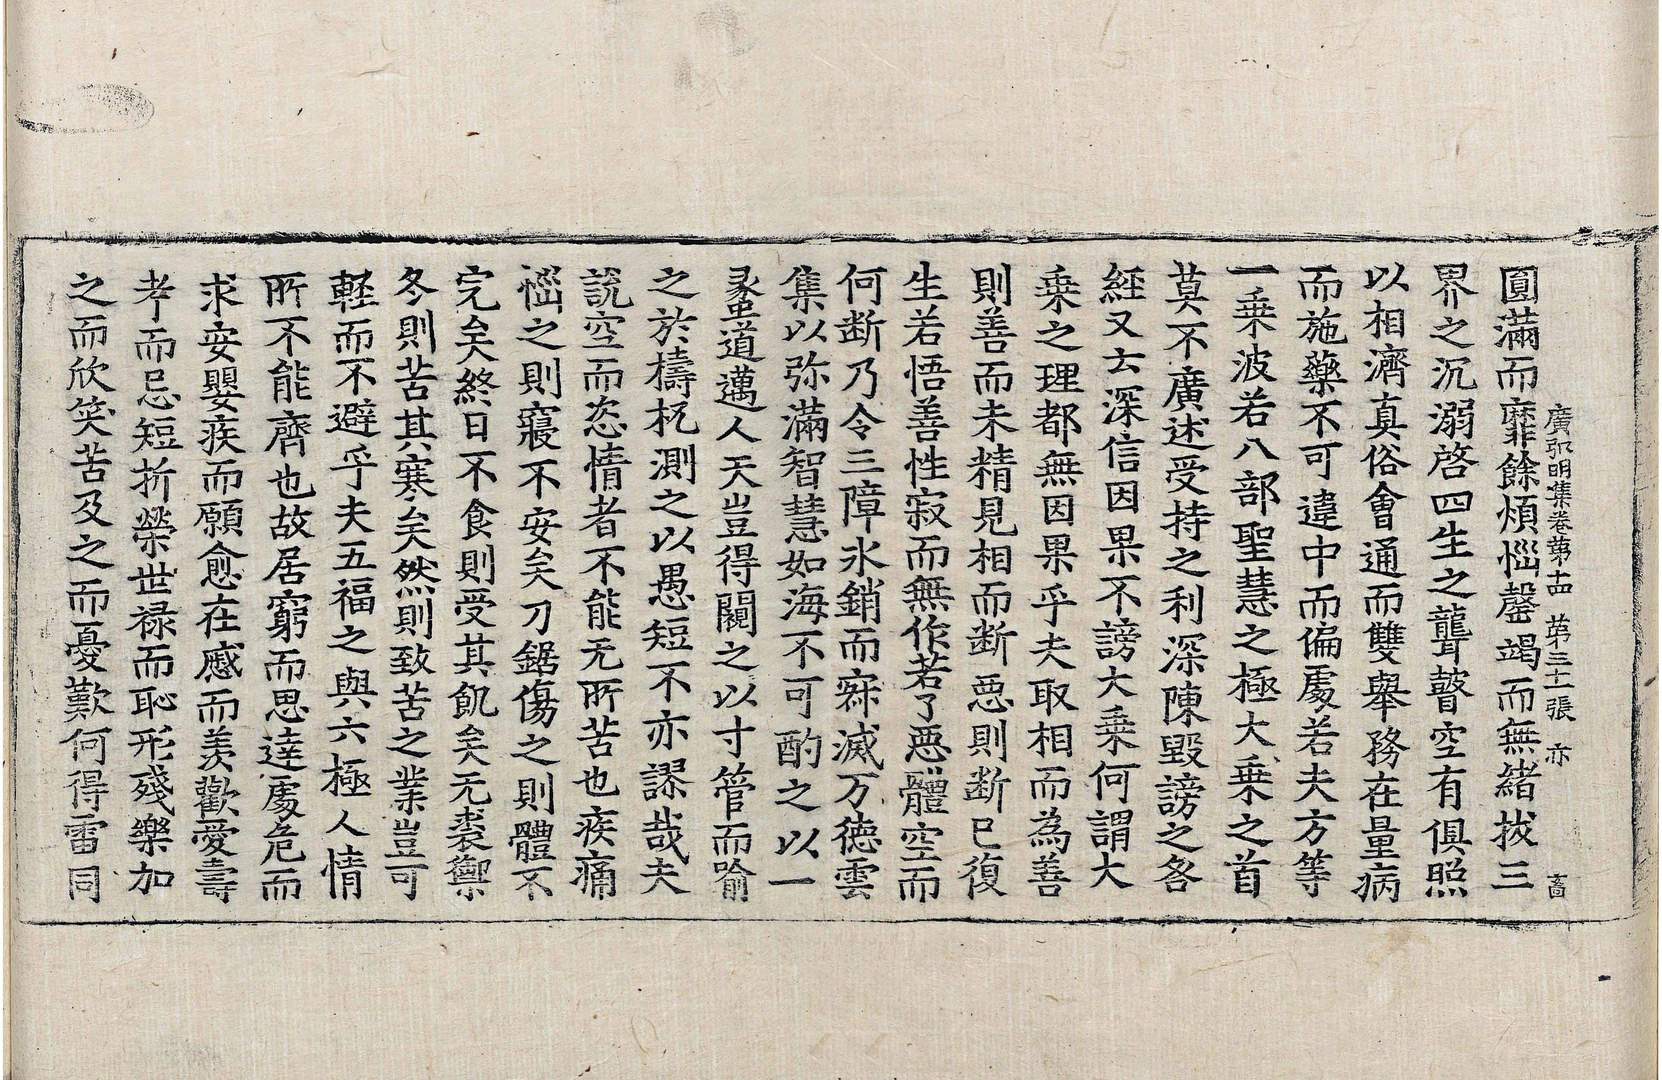 廣弘明集卷第十四　第三十一張　亦　畜
圓滿而靡餘煩惱罄竭而無緒拔三
界之沉溺啓四生之聾瞽空有俱照
以相濟真俗會通而雙舉務在量病
而施藥不可違中而偏處若夫方等
一乗波若八部聖慧之極大乗之首
莫不廣述受持之利深陳毀謗之咎
經又云深信因果不謗大乗何謂大
乗之理都無因果乎夫取相而為善
則善而未精見相而断惡則断已復
生若悟善性寂而無作若了惡體空而
何断乃令三障氷銷而寂滅万德雲
集以弥滿智慧如海不可酌之以一
蠡道邁人天豈得闚之以寸管而喻
之於檮杌測之以愚短不亦謬哉夫
說空而恣情者不能无所苦也疾痛
惱之則寢不安矣刀鋸傷之則體不
完矣終日不食則受其飢矣无裘禦
冬則苦其寒矣然則致苦之業豈可
輕而不避乎夫五福之與六極人情
所不能齊也故居窮而思達處危而
求安嬰疾而願愈在慼而羨歡愛壽
考而忌短折榮世禄而恥形殘樂加
之而欣笑苦及之而憂歎何得雷同